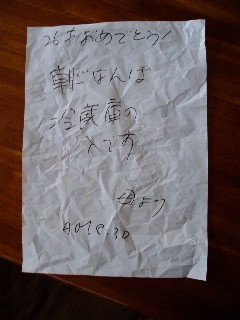 26才おめでとう!
朝ごはんは
冷蔵庫の
入です
母より
AM 8:30